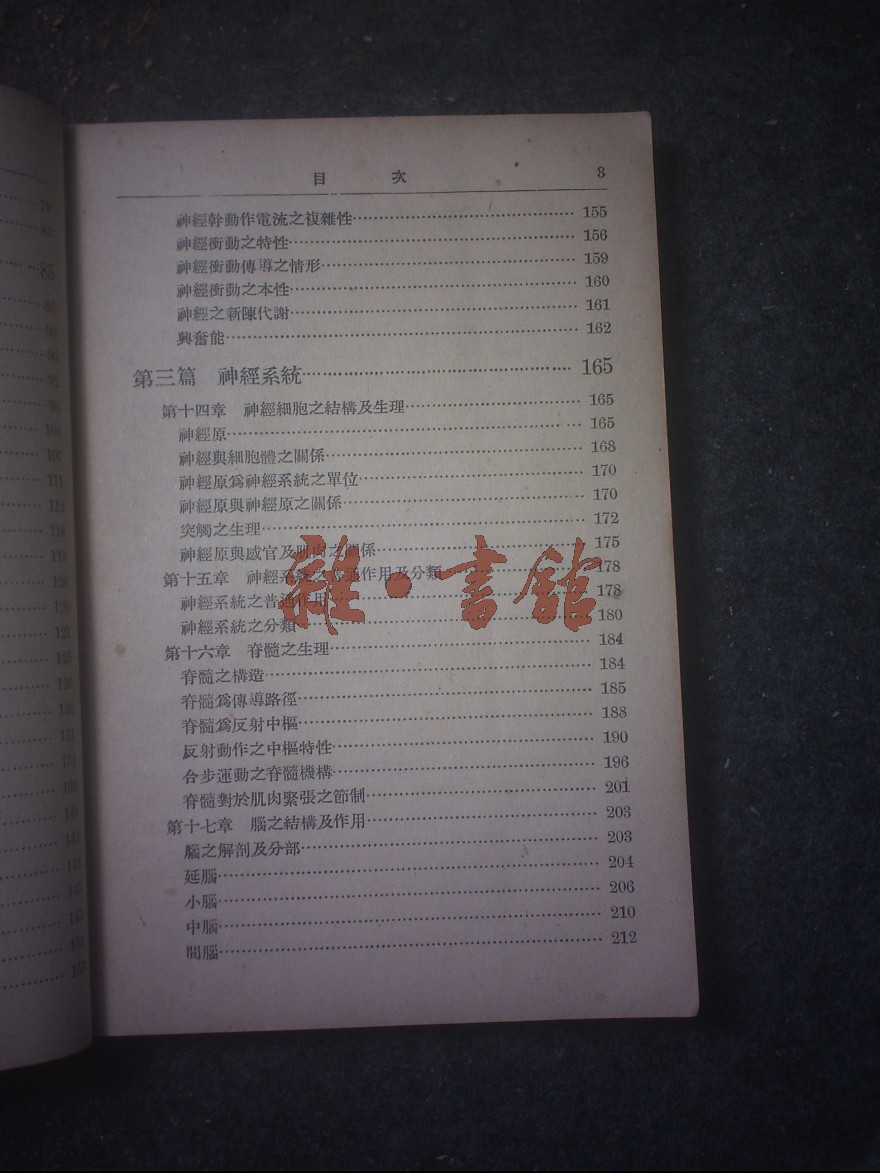 目 次 3
神經幹動作電流之複雜性 155
神經衝動之特性 156
神經衝動傳導之情形 159
神經衝動之本性 160
神經之新陳代謝 161
興奮能 162
第三篇 神經系統 165
第十四章 神經細胞之結構及生理 165
神經原 165
神經與細胞體之關係 168
神經原爲神經系統之單位 170
神經原與神經原之關係 170
突觸之生理 172
神經原與感官及肌肉之關係 175
第十五章 神經系統之普通作用及分類 178
神經系統之普通作用 178
神經系統之分類 180
第十六章 脊髓之生理 184
脊髓之構造 184
脊髓爲傳導路徑 185
脊髓爲反射中樞 188
反射動作之中樞特性 190
合步運動之脊髓機構 196
脊髓對於肌肉緊張之節制 201
第十七章 腦之結構及作用 203
腦之解剖及分部 203
延腦 204
小腦 206
中腦 210
間腦 212
雜·書館